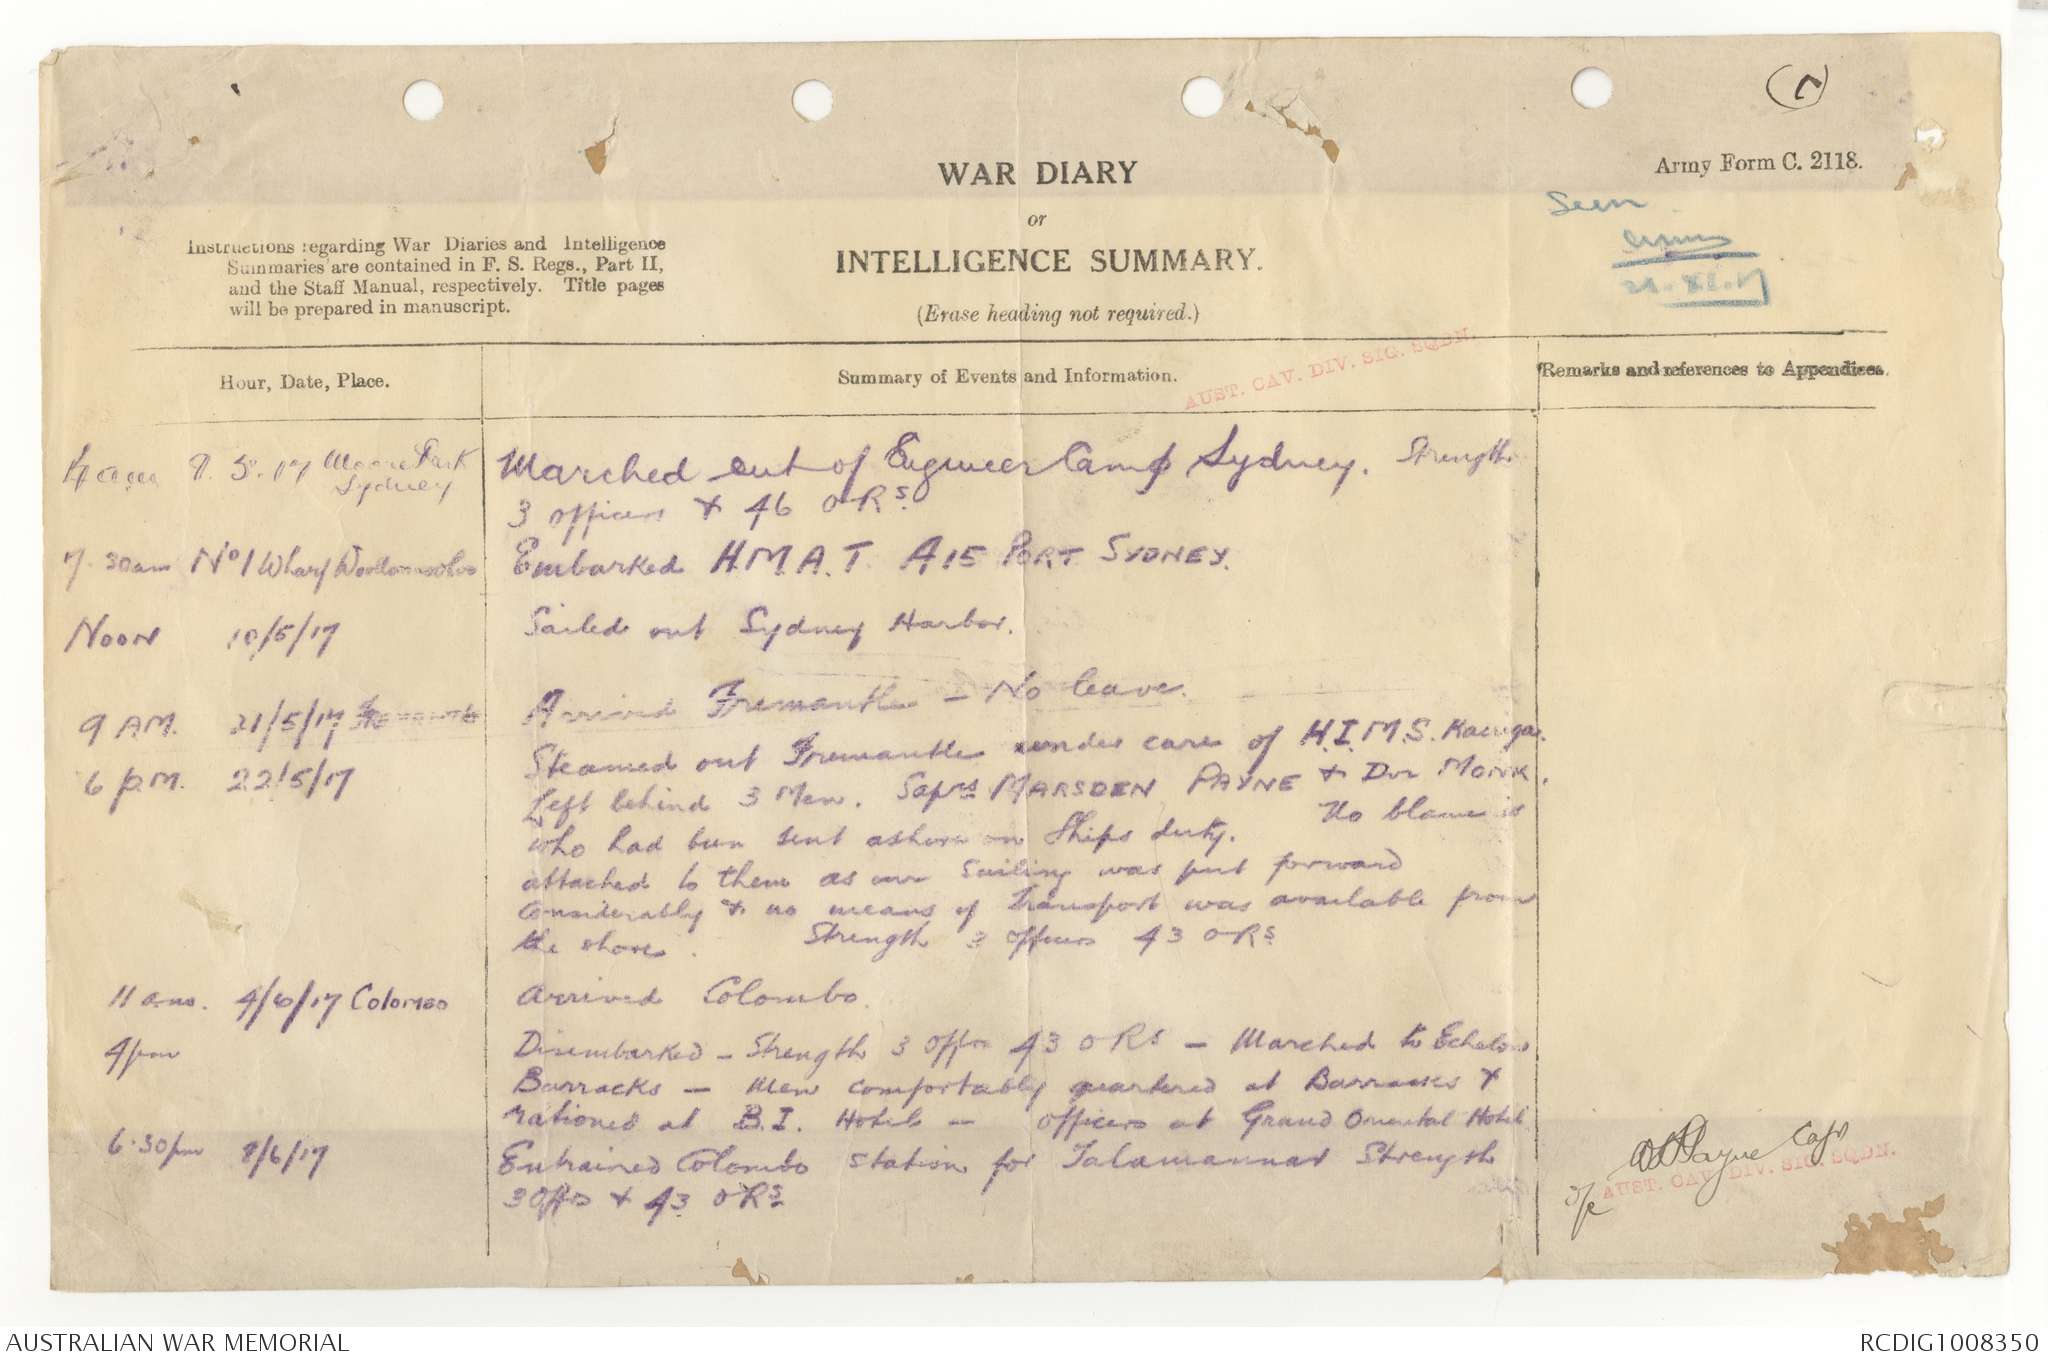 WAR DIARY
or
INTELLIGENCE SUMMARY.
(Erase heading not required.)
Army Form C. 2118.
Seen
Instructions regarding War Diaries and Intelligence
Summaries are contained in F. S. Regs., Part II,
and the Staff Manual, respectively. Title pages
will be prepared in manuscript.
AUST. CAV. DIV. SIG. SQDN.
Hour, Date, Place.
Summary of Events and Information.
Remarks and references to Appendices.
9. 5. 17 Moore Park
Sydney
Marched out of Engineer Camp Sydney. Strength
3 officers + 46 ORs
7.30am No 1 Wharf Woolloomooloo
Embarked H.M.A.T. A15 PORT SYDNEY.
NOON 10/5/17
Sailed out Sydney Harbor.
9 A.M. 21/5/17 FREMANTLE
Arrived Fremantle - No leave.
6 P.M. 22/5/17
Steamed out Fremantle under care of H.I.M.S. Kasuga.
Left behind 3 Men. Saprs MARSDEN PAYNE + Dvr MONK.
who had been sent ashore on Ships duty. No blame is
attached to them as our Sailing was put forward
considerably + no means of Transport was available from
the shore. Strength 3 officers 43 ORs
11 am. 4/6/17 COLOMBO
Arrived Colombo.
4pm
Disembarked - Strength 3 offrs 43 ORs - Marched to Echelon
Barracks - Men comfortably quartered at Barracks +
rationed at B.I. Hotel - officers at Grand Oriental Hotel
6.30pm 8/6/17
Entrained Colombo Station for Talamannar Strength
3 Offrs + 43 ORs
Payne Capt
AUST. CAV. DIV. SIG. SQDN.
AUSTRALIAN WAR MEMORIAL
RCDIG1008350